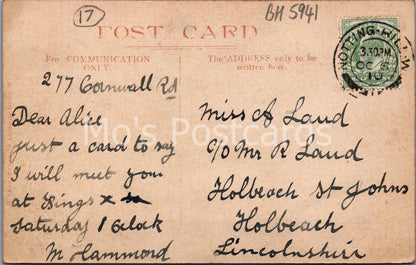 17
BH 5941
POST CARD
For COMMUNICATION
ONLY.
The ADDRESS only to be
written here.
NOTTING-HILL. W
3.30PM
OC 5
10
277 Cornwall Rd
Dear Alice
just a card to say
I will meet you
at Kings X
Saturday 1 Oclock
M Hammond
Miss A Laud
C/o Mr R Laud
Holbeach St Johns
Holbeach
Lincolnshire
Mo's Postcards